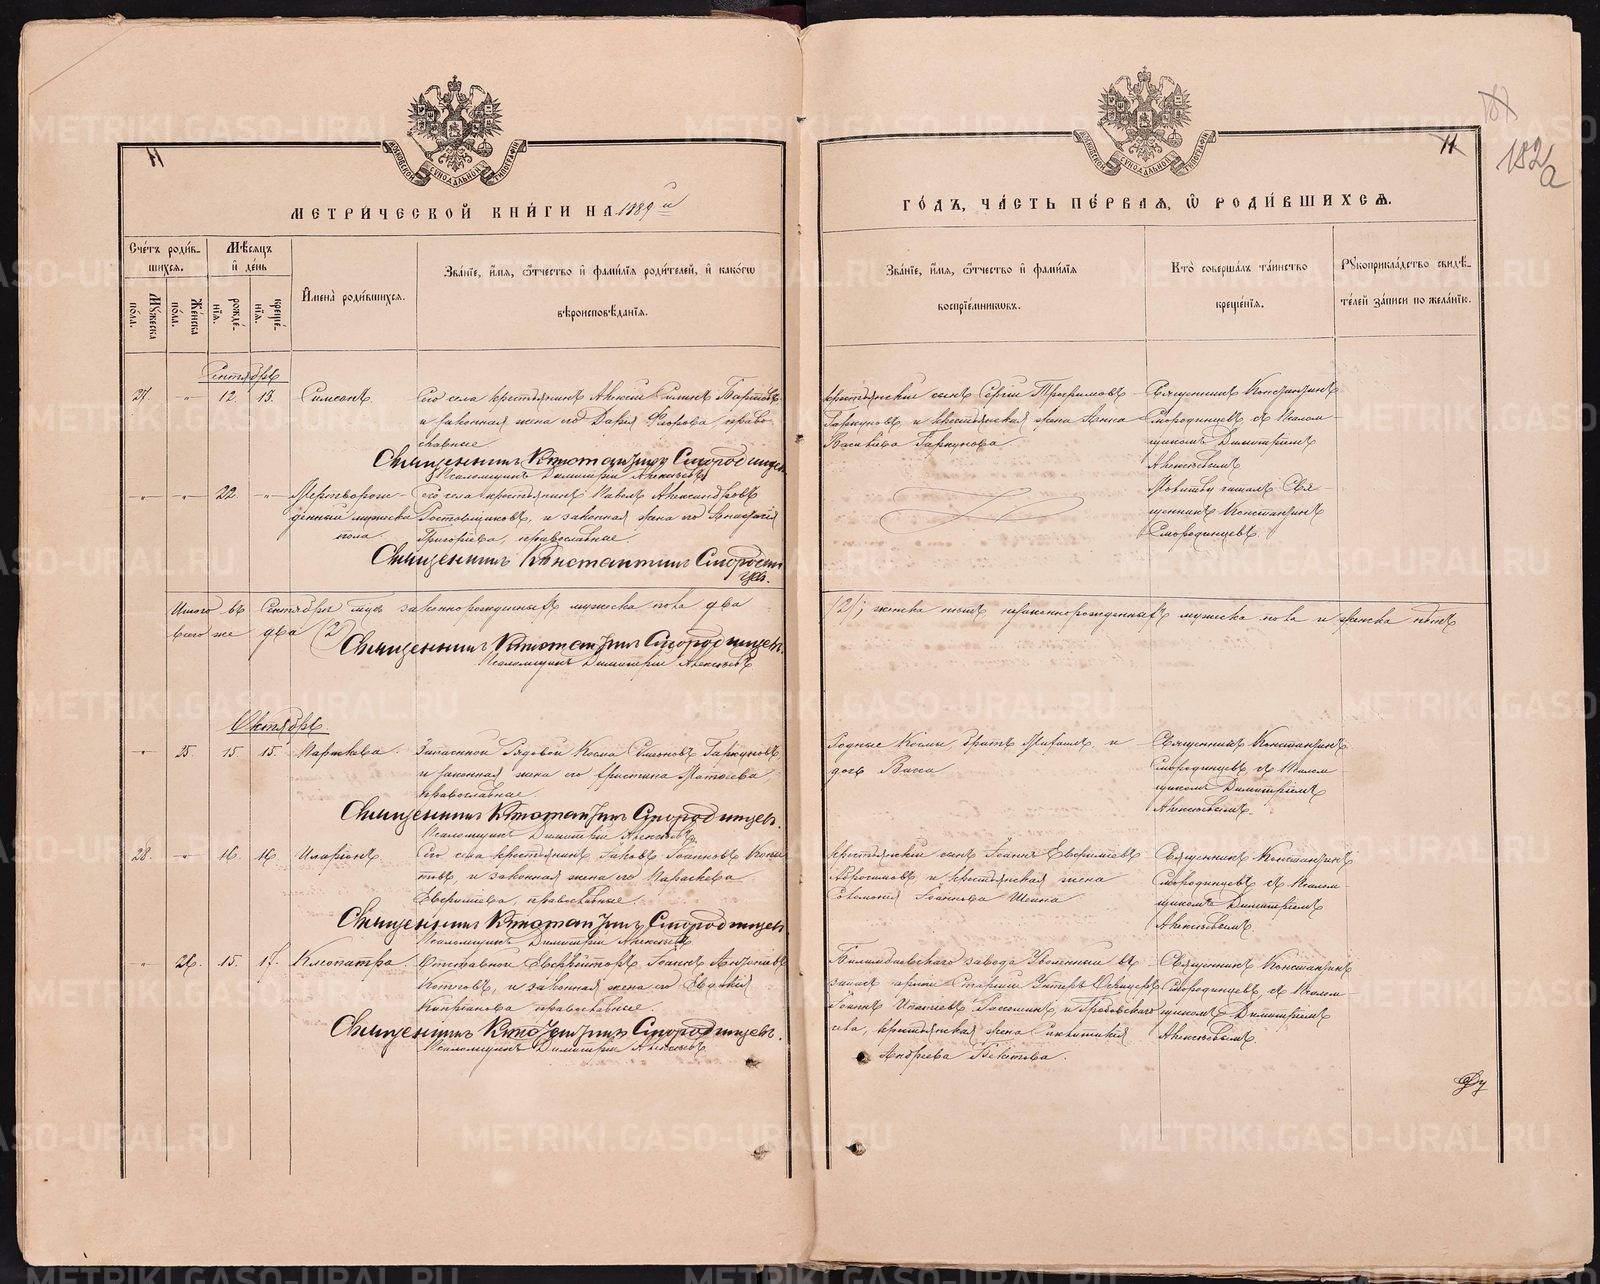 11
МЕТРИ́ЧЕСКОЙ КНИ́ГИ НА 1889 й
Сче́тъ роди́в-
шихсѧ.
Мѣ́сѧцъ
и҆ де́нь
Мꙋ́жеска
по́ла.
Же́нска
по́ла.
рожде́-
нїѧ.
креще́-
нїѧ.
И҆мена̀ роди́вшихсѧ.
Зва́нїе, и҆́мѧ, ѻ҆́тчество и҆ фамилїѧ роди́телей, и҆ како́гѡ
вѣроисповѣ́данїѧ.
Сентябрь
27 " 12. 13. Симеонъ Сего села крестьянинъ Алексій
и законная жена его Дарья Флорова право
славные
Священникъ Константинъ Смородинцевъ
Псаломщикъ Димитрій Алексѣевъ
" " 22. " Мертворож- Сего села крестьянинъ Павелъ Александровъ
денный мужеска Ростовщиковъ, и законная жена его Анастасія
пола Григоріева, православные.
Священникъ Константинъ Смородин
цевъ.
Итого въ Сентябрѣ мцѣ законнорожденныхъ мужеска пола два
всего же два (2)
Священникъ Константинъ Смородинцевъ.
Псаломщикъ Димитрій Алексѣевъ
Октябрь
" 25 15 15. Параскева. Запасной Рядовой Косма Симеоновъ Гаркуновъ
и законная жена его Христина Матѳіева
православные.
Священникъ Константинъ Смородинцевъ.
Псаломщикъ Димитрій Алексѣевъ
28. " 16. 16. Иларіонъ Сего села крестьянинъ Іаковъ Іоанновъ
и законная жена его Параскева
Евѳиміева, православные.
Священникъ Константинъ Смородинцевъ.
Псаломщикъ Димитрій Алексѣевъ
" 26. 15. 17. Клеопатра. Отставной Ефрейторъ Іоаннъ
и законная жена его Евдокія
Кипріанова православные
Священникъ Константинъ Смородинцевъ.
Псаломщикъ Димитрій Алексѣевъ
11
182а
ГО́ДЪ, ЧА́СТЬ ПЕ́РВАѦ, Ѡ҆ РОДИ́ВШИХСѦ.
Зва́нїе, и҆́мѧ, ѻ҆́тчество и҆ фамилїѧ
воспрїе́мникѡвъ.
Кто̀ соверша́лъ та́инство
креще́нїѧ.
Рꙋкоприкла́дство свидѣ́-
телей за́писи по жела́нїю.
Крестьянскій сынъ Сергій Трофимовъ
Гаркуновъ и крестьянская жена Анна
Васильева Гаркунова
Священникъ Константинъ
Смородинцевъ съ Псалом-
щикомъ Димитріемъ
Алексѣевымъ
Молитву читалъ Свя-
щенникъ Константинъ
Смородинцевъ.
(2); женска незаконнорожденныхъ мужеска пола и женска
Родные Космы, братъ Михаилъ и
дочь Васса
Священникъ Константинъ
Смородинцевъ съ Псалом
щикомъ Димитріемъ
Алексѣевымъ.
Крестьянскій сынъ Іоаннъ Евѳиміевъ
и крестьянская жена
Іоаннова
Священникъ Константинъ
Смородинцевъ съ Псалом-
щикомъ Димитріемъ
Алексѣевымъ.
Билимбаевскаго завода Уволенный въ
запасъ арміи Старшій Унтеръ Офицеръ
Іоаннъ и
крестьянская жена
Андреева
Священникъ Константинъ
Смородинцевъ, съ Псалом-
щикомъ Димитріемъ
Алексѣевымъ.
METRIKI.GASO-URAL.RU